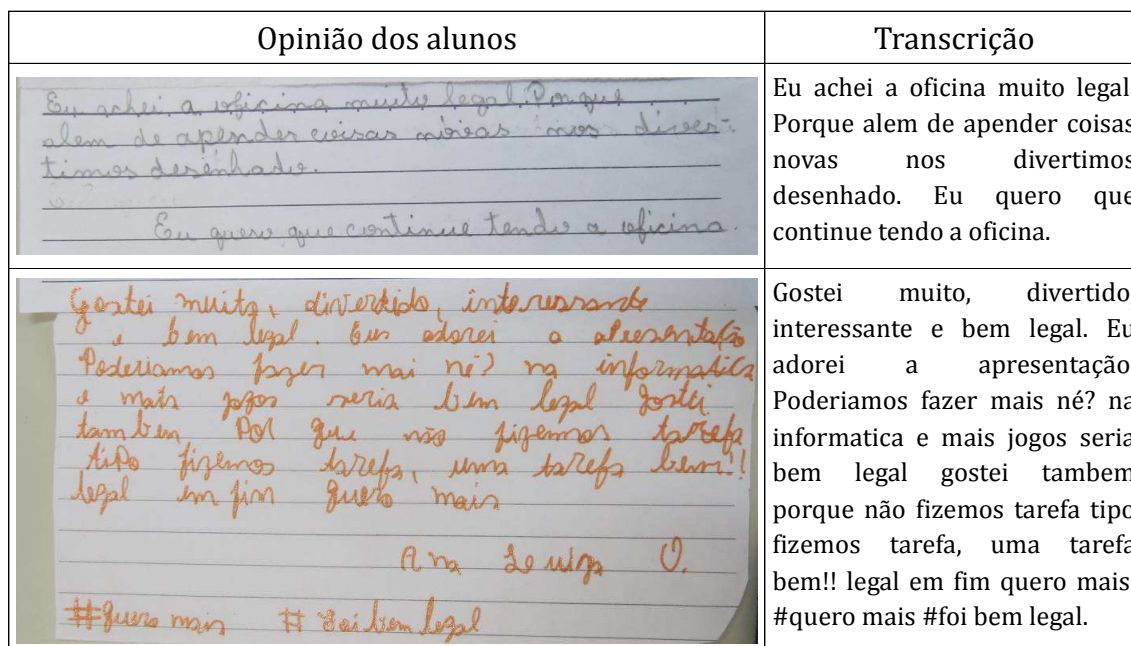 Opinião dos alunos
Transcrição
Eu achei a oficina muito legal. Porque
alem de apender coisas novas nos diver-
timos desenhado.
Eu quero que continue tendo a oficina.
Eu achei a oficina muito legal
Porque alem de apender coisas
novas nos divertimos
desenhado. Eu quero que
continue tendo a oficina.
Gostei muito, divertido, interessante
e bem legal. Eu adorei a apresentação
Poderiamos fazer mai né? na informatica
e mais jogos seria bem legal gostei
tambem Por que não fizemos tarefa
tipo fizemos tarefa, uma tarefa bem!!
legal em fim quero mais
Ana Luiza O.
#quero mais # foi bem legal
Gostei muito, divertido,
interessante e bem legal. Eu
adorei a apresentação
Poderiamos fazer mais né? na
informatica e mais jogos seria
bem legal gostei tambem
porque não fizemos tarefa tipo
fizemos tarefa, uma tarefa
bem!! legal em fim quero mais
#quero mais #foi bem legal.